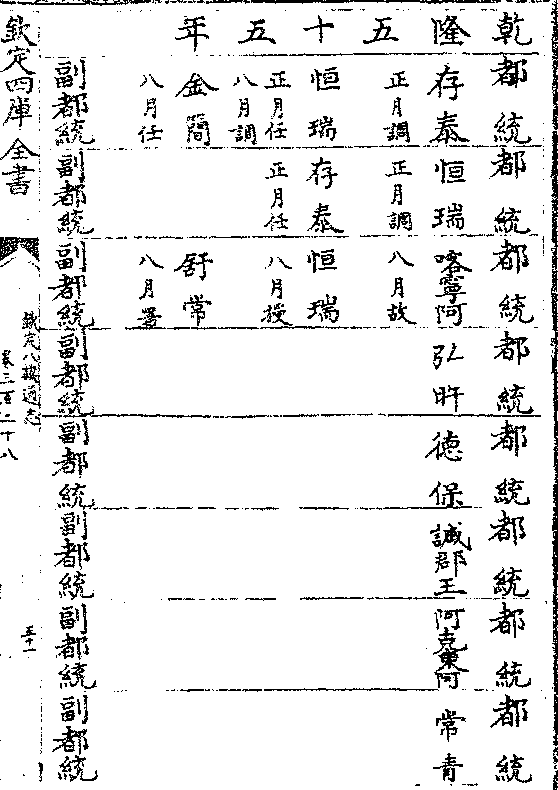 乾隆五十五年
都統
存泰
正月調
恒瑞
正月任
八月調
金簡
八月任
副都統
都統
恒瑞
正月調
存泰
正月任
副都統
都統
喀寧阿
八月故
恒瑞
八月授
舒常
八月署
副都統
都統
弘旿
副都統
都統
德保
副都統
都統
誠郡王
副都統
都統
阿克東阿
副都統
都統
常青
副都統
欽定四庫全書
欽定八旗通志
卷三百二十八